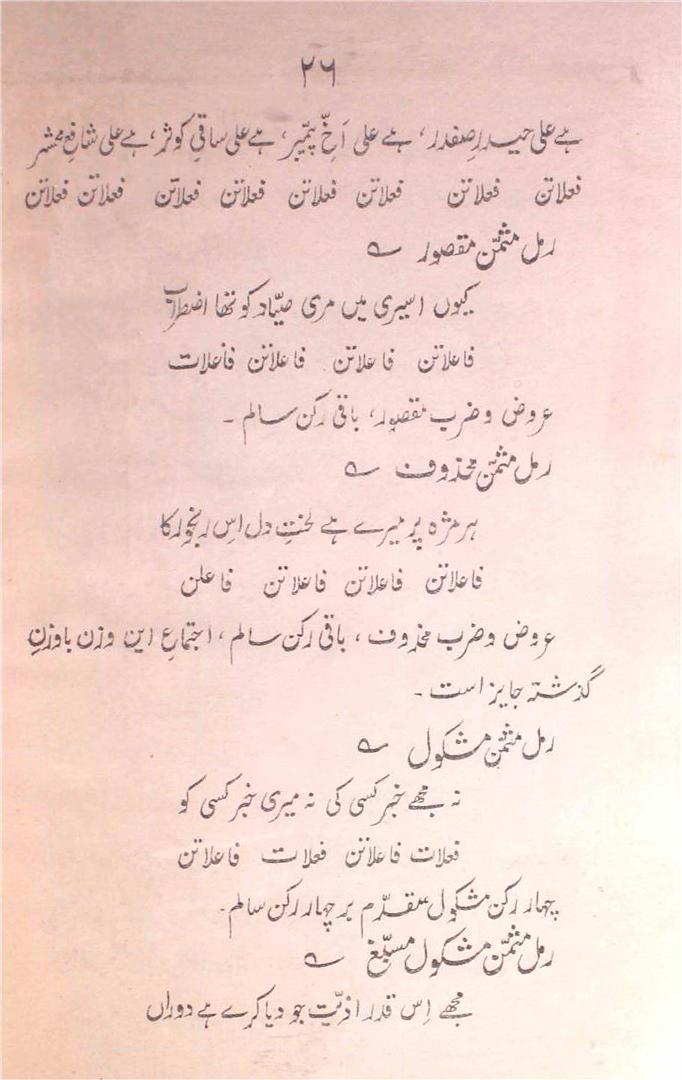 ۲۶
ہے علی حیدرِ صفدر، ہے علی اَخِّ پیمبر، ہے علی ساقیِ کوثر، ہے علی شافعِ محشر
فعلاتن فعلاتن فعلاتن فعلاتن فعلاتن فعلاتن فعلاتن فعلاتن
رمل مثمّن مقصور ؎
کیوں اسیری میں مری صیّاد کو تھا اضطراب
فاعلاتن فاعلاتن فاعلاتن فاعلات
عروض و ضرب مقصور، باقی رکن سالم ۔
رمل مثمّن محذوف ؎
ہر مژہ پر میرے ہے لختِ دل اس رنجور کا
فاعلاتن فاعلاتن فاعلاتن فاعلن
عروض و ضرب محذوف، باقی رکن سالم، اجتماعِ این وزن باوزنِ
گذشتہ جایز است ۔
رمل مثمّن مشکول ؎
نہ مجھے خبر کسی کی نہ میری خبر کسی کو
فعلات فاعلاتن فعلات فاعلاتن
چہار رکن مشکول مقدّم بر چہار رکن سالم ۔
رمل مثمّن مشکول مسبّغ ؎
مجھے اِس قدر اذیّت جو دیا کرے ہے دوراں